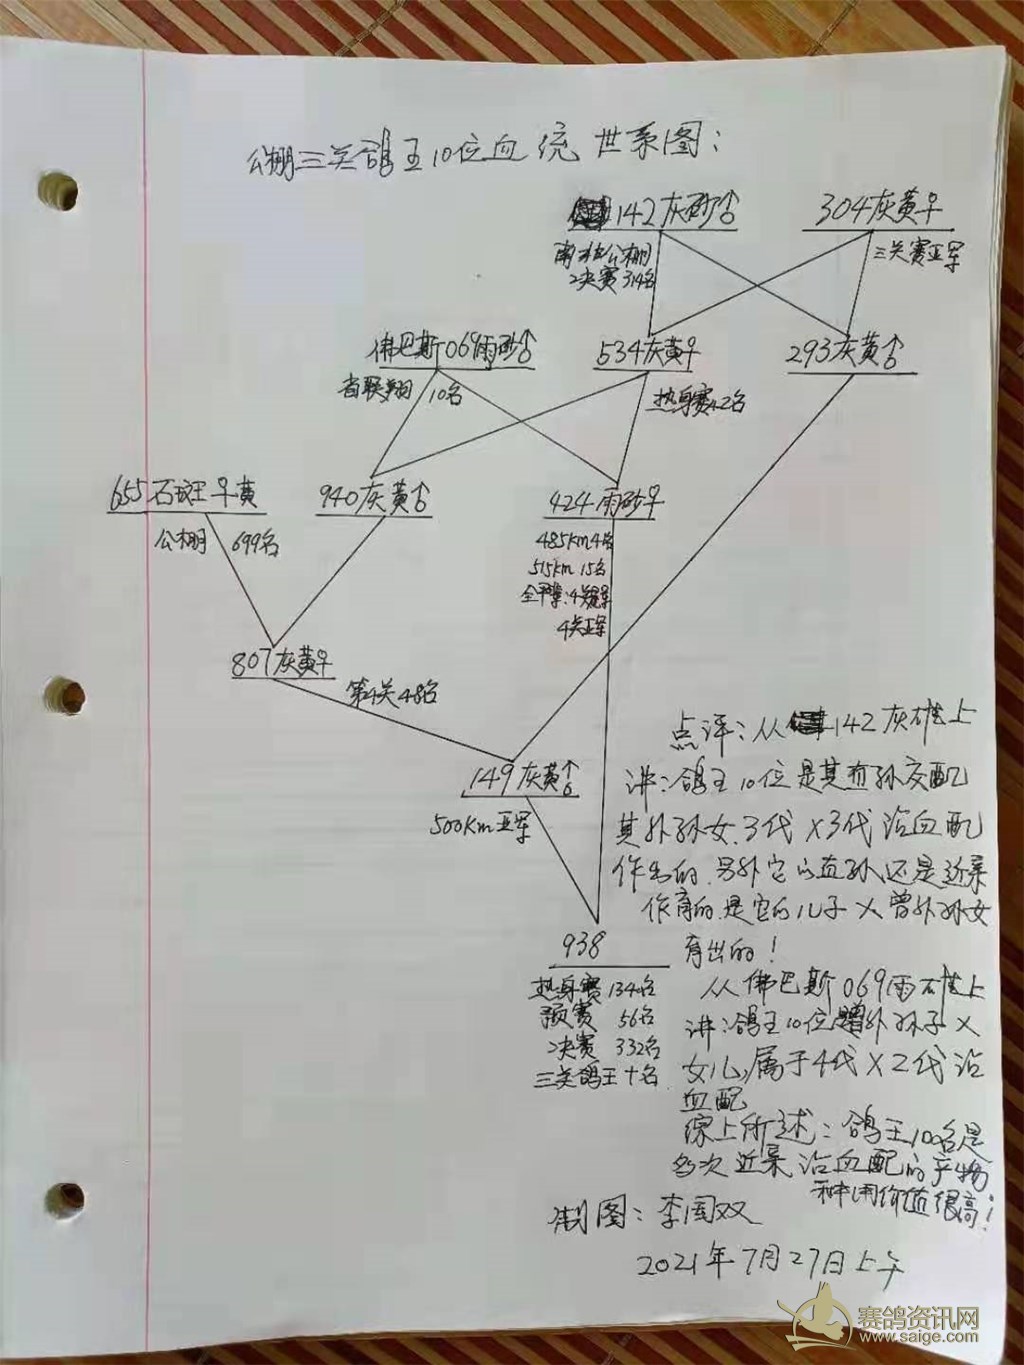 公棚三关鸽王10位血统世系图:
142灰砂♂
304灰黄♀
公棚
2决赛314名
三关赛亚军
佛巴斯069雨砂♂
534灰黄♀
293灰黄♂
省联翔
10名
热身赛42名
655石斑王♀黄
940灰黄♂
424雨砂♀
公棚
699名
485km4名
515km 15名
4关亚军
807灰黄♀
第4关48名
149灰黄♂
500Km亚军
938
热身赛134名
预赛 56名
2决赛 332名
三关鸽王十名
点评:从142灰雄上
讲:鸽王10位是其直孙交配
其外孙女.3代X3代沿血配
作出的.另外它的直孙还是近亲
作育的.是它的儿子X曾外孙女
育出的!
从佛巴斯069雨雄上
讲:鸽王10位曾外孙子X
女儿,属于4代X2代沿
血配
综上所述:鸽王10名是
多次近亲沿血配的产物
种用价值很高!
制图:李国双
2021年7月27日上午
赛鸽资讯网
www.saige.com